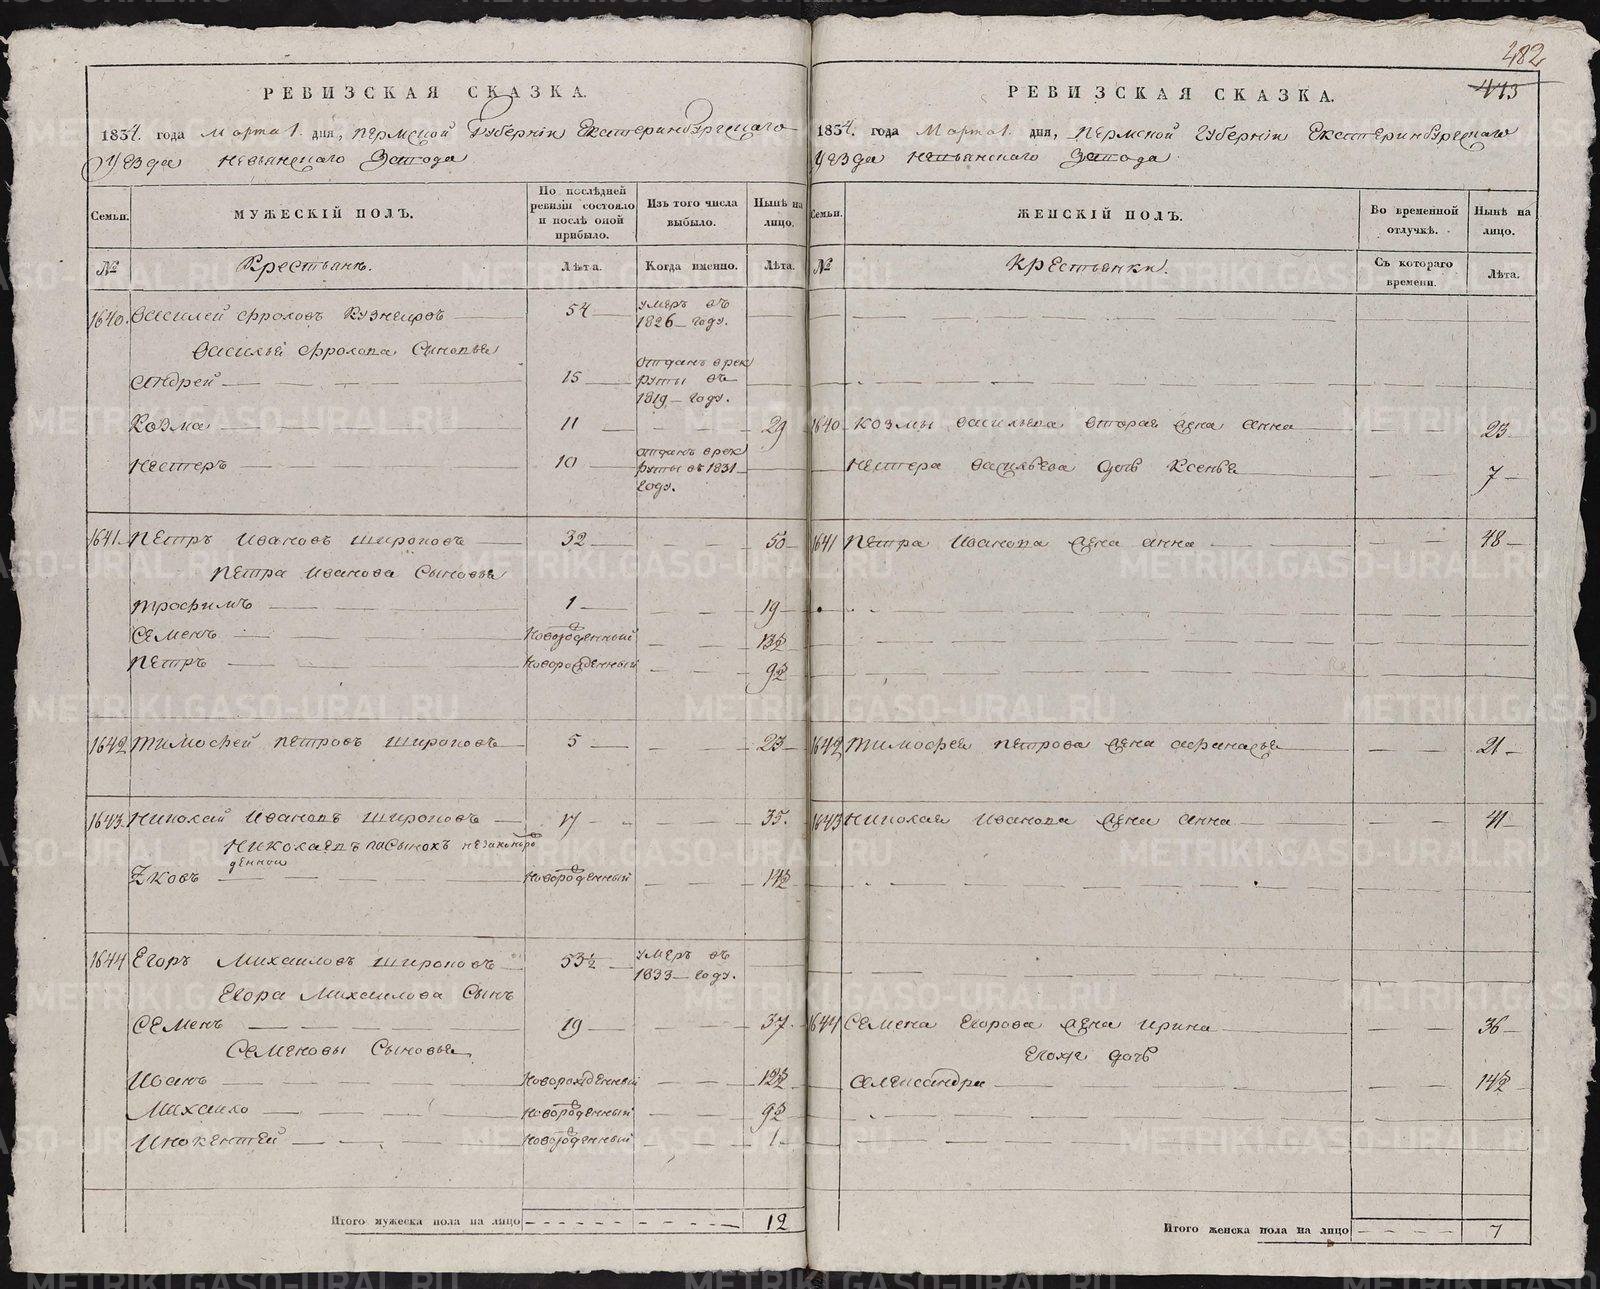 482
РЕВИЗСКАЯ СКАЗКА.
1834. года Марта 1. дня, Пермской Губернiи Екатеринбургскаго
Уѣзда Невьянскаго Завода
Семьи.
МУЖЕСКIЙ ПОЛЪ.
По послѣдней ревизiи состояло и послѣ оной прибыло.
Изъ того числа выбыло.
Нынѣ на лицо.
№
Крестьяне.
Лѣта.
Когда именно.
Лѣта.
1640. Василей Фроловъ Кузнецовъ 54 умеръ въ 1826 году.
Василья Фролова Сыновья
Андрей 15 отданъ в рекруты въ 1819 году.
Козма 11 29
Нестеръ 10 отданъ в рекруты въ 1831 году.
1641 Петръ Ивановъ Широковъ 32 50
Петра Иванова Сыновья
Трофимъ 1 19
Семенъ Новорожденный 13½
Петръ Новорожденный 9½
1642 Тимофей Петровъ Широковъ 5 23
1643 Николай Ивановъ Широковъ 17 35.
Николаевъ пасынокъ незаконнорожденной
Яковъ Новорожденный 14½
1644 Егоръ Михаиловъ Широковъ 53½ умеръ въ 1833 году.
Егора Михаилова Сынъ
Семенъ 19 37
Семеновы Сыновья
Иванъ Новорожденный 12½
Михаило Новорожденный 9½
Инокентей Новорожденный 1
Итого мужеска пола на лицо 12
РЕВИЗСКАЯ СКАЗКА.
473
1834. года Марта 1. дня, Пермской Губернiи Екатеринбургскаго
Уѣзда Невьянскаго Завода
Семьи.
ЖЕНСКIЙ ПОЛЪ.
Во временной отлучкѣ.
Нынѣ на лицо.
№
Крестьянки.
Съ котораго времени.
Лѣта.
1640 Козмы Васильева вторая жена Анна 23
Нестера Васильева дочь Ксенья 7
1641 Петра Иванова жена Анна 48
1642 Тимофея Петрова жена Афанасья 21
1643 Николая Иванова жена Анна 41
1644 Семена Егорова жена Ирина 36
Егоже дочь
Александра 14½
Итого женска пола на лицо 7
METRIKI.GASO-URAL.RU